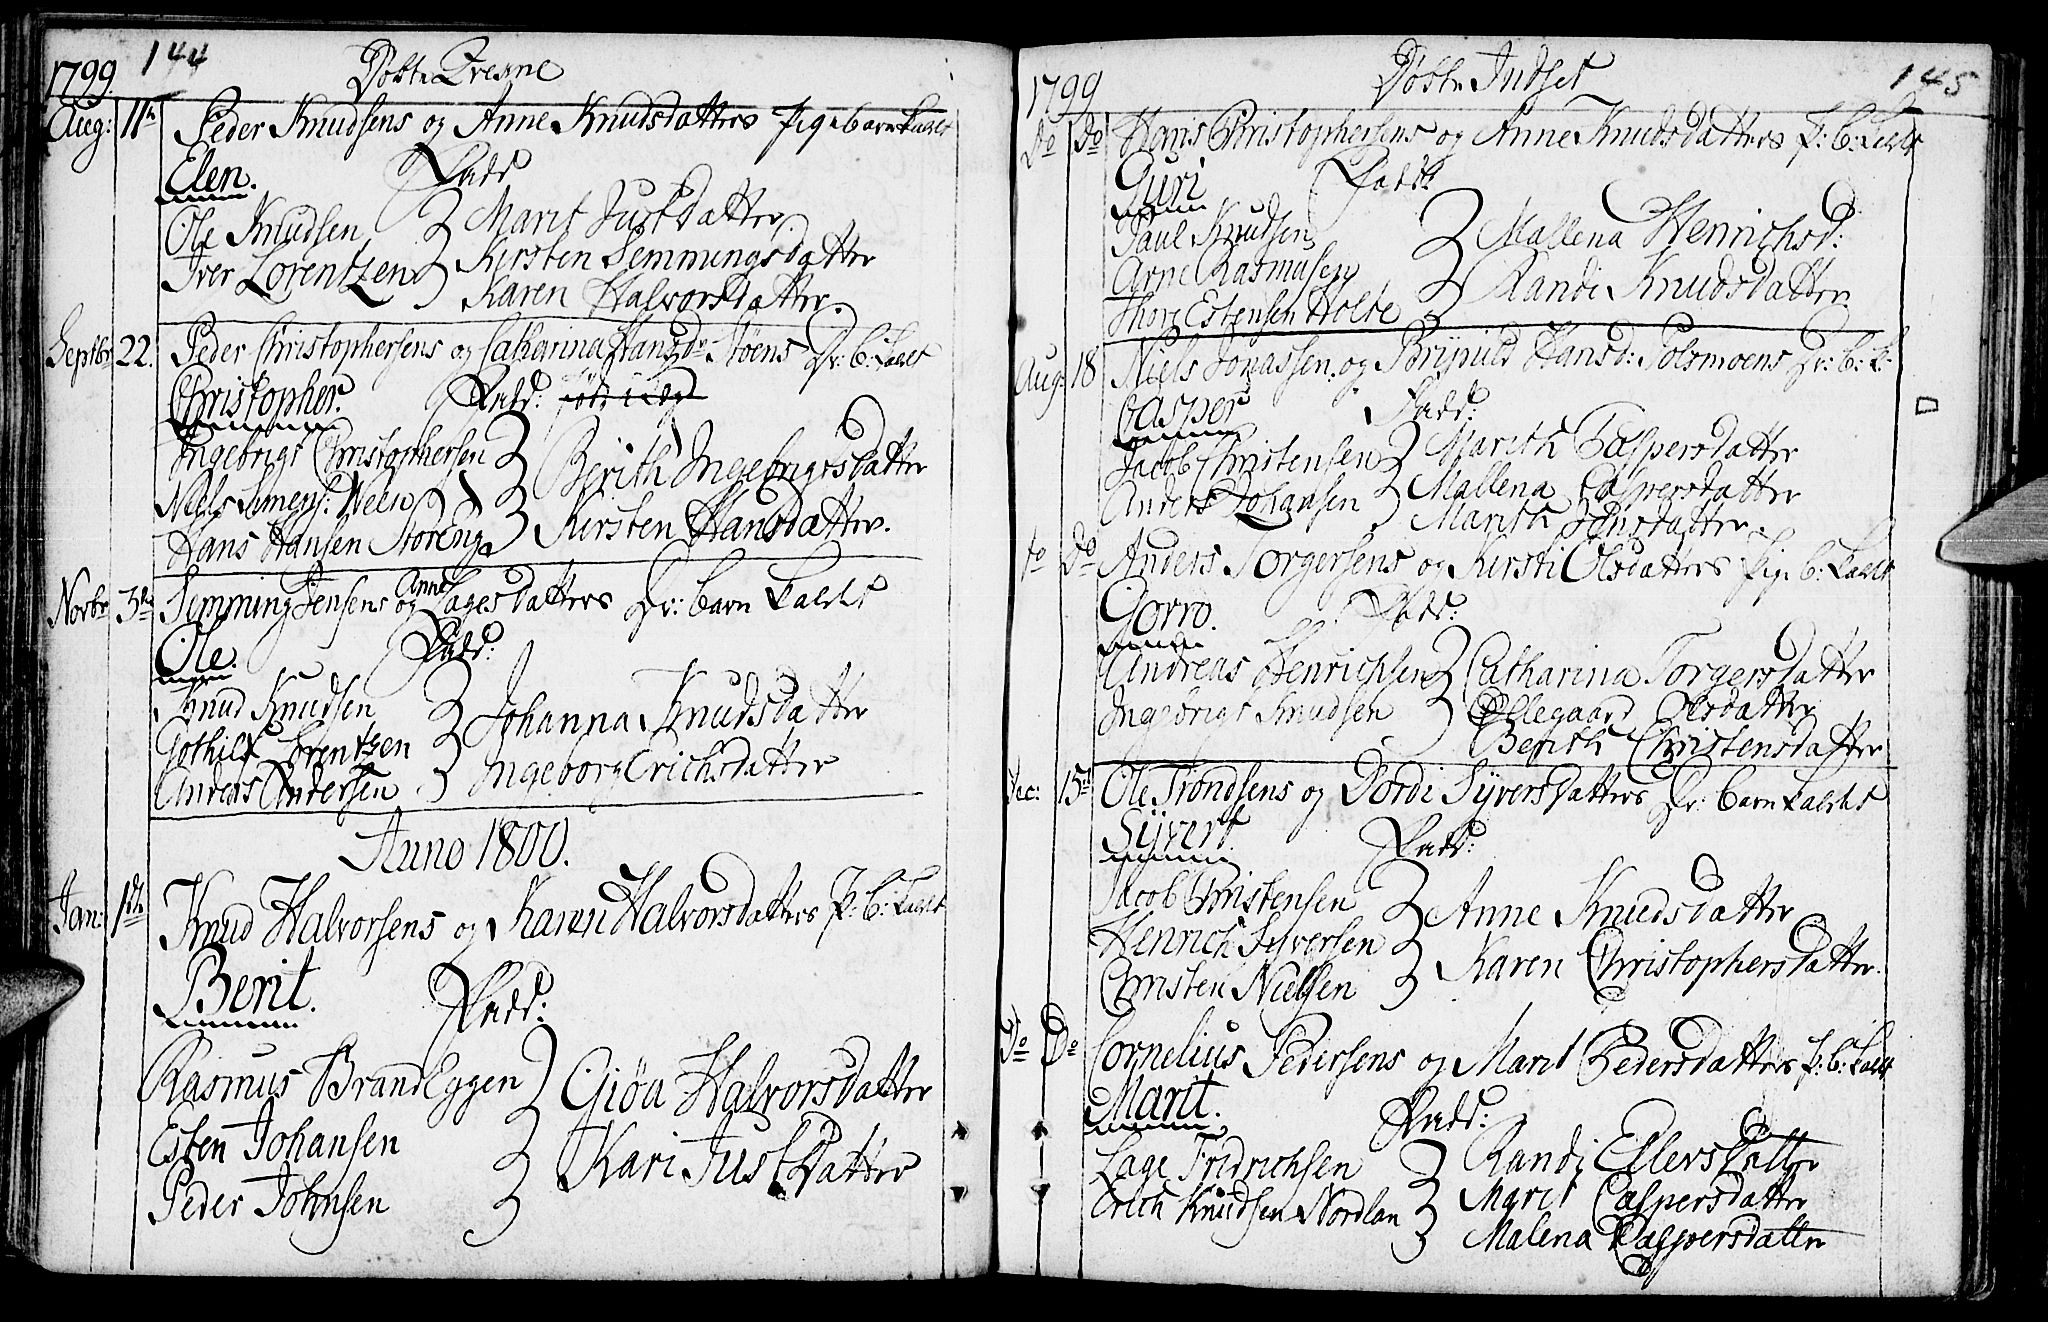 144
1799. Døbte Qvesne
Aug: 11te Peder Knudsens og Anne Knudsdatters Pige barn kaldt
Elen. Fadd
Ole Knudsen Marit Justdatter
Iver Lorentzen Kirsten Semmingsdatter
Karen Halvorsdatter.
Septbr 22. Peder Christophersens og Catharina Hansdr Støens Dr: b: kaldt
Christopher. Fadd:
Ingebrigt Christophersen Berith Ingebrigtsdatter
Niels Simens: Neen
Hans Hansen Storeng Kirsten Hansdatter.
Novbr 3de Semming Jensens og Anne Lagesdatters Dr: barn kaldet
Ole. Fadd:
Knud Knudsen Johanna Knudsdatter
Gothilf Lorentzen
Anders Andersen Ingeborg Erichsdatter
Anno 1800.
Jan: 1de Knud Halvorsens og Karen Halvorsdatters P: b: kaldt
Berit. Fadd:
Rasmus BrandEggen Giøa Halvorsdatter
Esten Johansen
Peder Johnsen Kari Justdatter
145
1799 Døbte Indset
Do Do Hans Christophersens og Anne Knudsdatters P: b: kaldt
Guri Fadd:
Paul Knudsen Mallena Henrichsd:
Arne Rasmusen Randi Knudsdatter
Thore Estensen Holte
Aug: 18 Niels Jonassen og Brynild Hansd: Polsmoens Dr: b: k:
Casper Fadd:
Jacob Christensen Marith Caspersdatter
Anders Johansen Mallena Caspersdatter
Marith Johnsdatter.
Do Do Anders Torgersens og Kirsti Olsdatters Pige b: kaldt
Gorro. Fadd:
Andreas Henrichsen Catharina Torgersdatter
Ingebrigt Knudsen Ollegaard Olsdatter
Berith Christensdatter
Dec: 15de Ole Trondsens og Dordi Syversdatters Dr: barn kaldet
Syvert. Fadd:
Jacob Christensen Anne Knudsdatter
Henrich Syversen
Christen Nielsen Karen Christophersdatter.
Do Do Cornelius Pedersens og Marit Pedersdatters P: b: kaldt
Marit. Fadd:
Lage Fridrichsen Randi Ellersdatter
Erich Knudsen Nordlan Marit Caspersdatter
Malena Caspersdatter